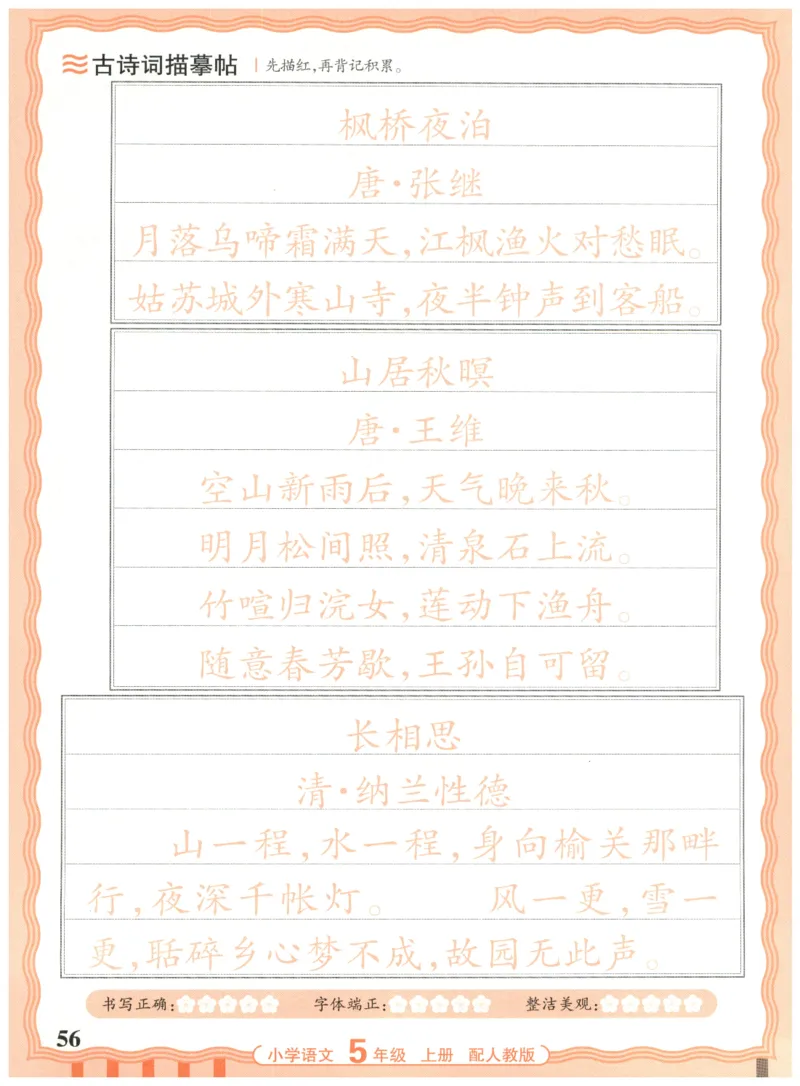 古诗词描摹帖 先描红,再背记积累。
枫桥夜泊
唐·张继
月落乌啼霜满天,江枫渔火对愁眠。
姑苏城外寒山寺,夜半钟声到客船。
山居秋暝
唐·王维
空山新雨后,天气晚来秋。
明月松间照,清泉石上流。
竹喧归浣女,莲动下渔舟。
随意春芳歇,王孙自可留。
长相思
清·纳兰性德
山一程,水一程,身向榆关那畔
行,夜深千帐灯。 风一更,雪一
更,聒碎乡心梦不成,故园无此声。
书写正确: 字体端正: 整洁美观:
56
小学语文 5年级 上册 配人教版